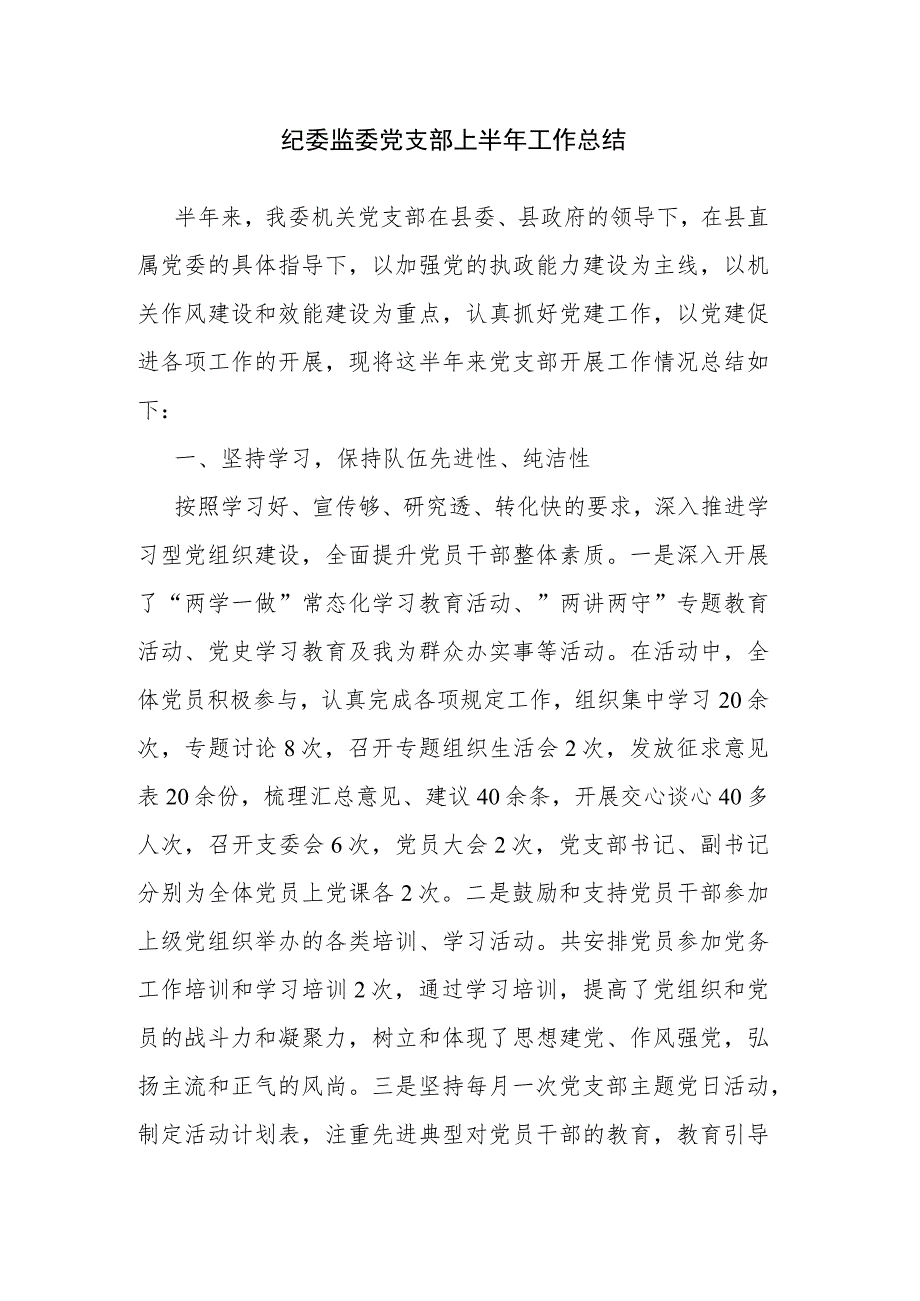 纪委监委党支部上半年工作总结
半年来，我委机关党支部在县委、县政府的领导下，在县直
属党委的具体指导下，以加强党的执政能力建设为主线，以机
关作风建设和效能建设为重点，认真抓好党建工作，以党建促
进各项工作的开展，现将这半年来党支部开展工作情况总结如
下：
一、坚持学习，保持队伍先进性、纯洁性
按照学习好、宣传够、研究透、转化快的要求，深入推进学
习型党组织建设，全面提升党员干部整体素质。一是深入开展
了“两学一做”常态化学习教育活动、”两讲两守”专题教育
活动、党史学习教育及我为群众办实事等活动。在活动中，全
体党员积极参与，认真完成各项规定工作，组织集中学习20余
次，专题讨论8次，召开专题组织生活会2次，发放征求意见
表20余份，梳理汇总意见、建议40余条，开展交心谈心40多
人次，召开支委会6次，党员大会2次，党支部书记、副书记
分别为全体党员上党课各2次。二是鼓励和支持党员干部参加
上级党组织举办的各类培训、学习活动。共安排党员参加党务
工作培训和学习培训2次，通过学习培训，提高了党组织和党
员的战斗力和凝聚力，树立和体现了思想建党、作风强党，弘
扬主流和正气的风尚。三是坚持每月一次党支部主题党日活动，
制定活动计划表，注重先进典型对党员干部的教育，教育引导